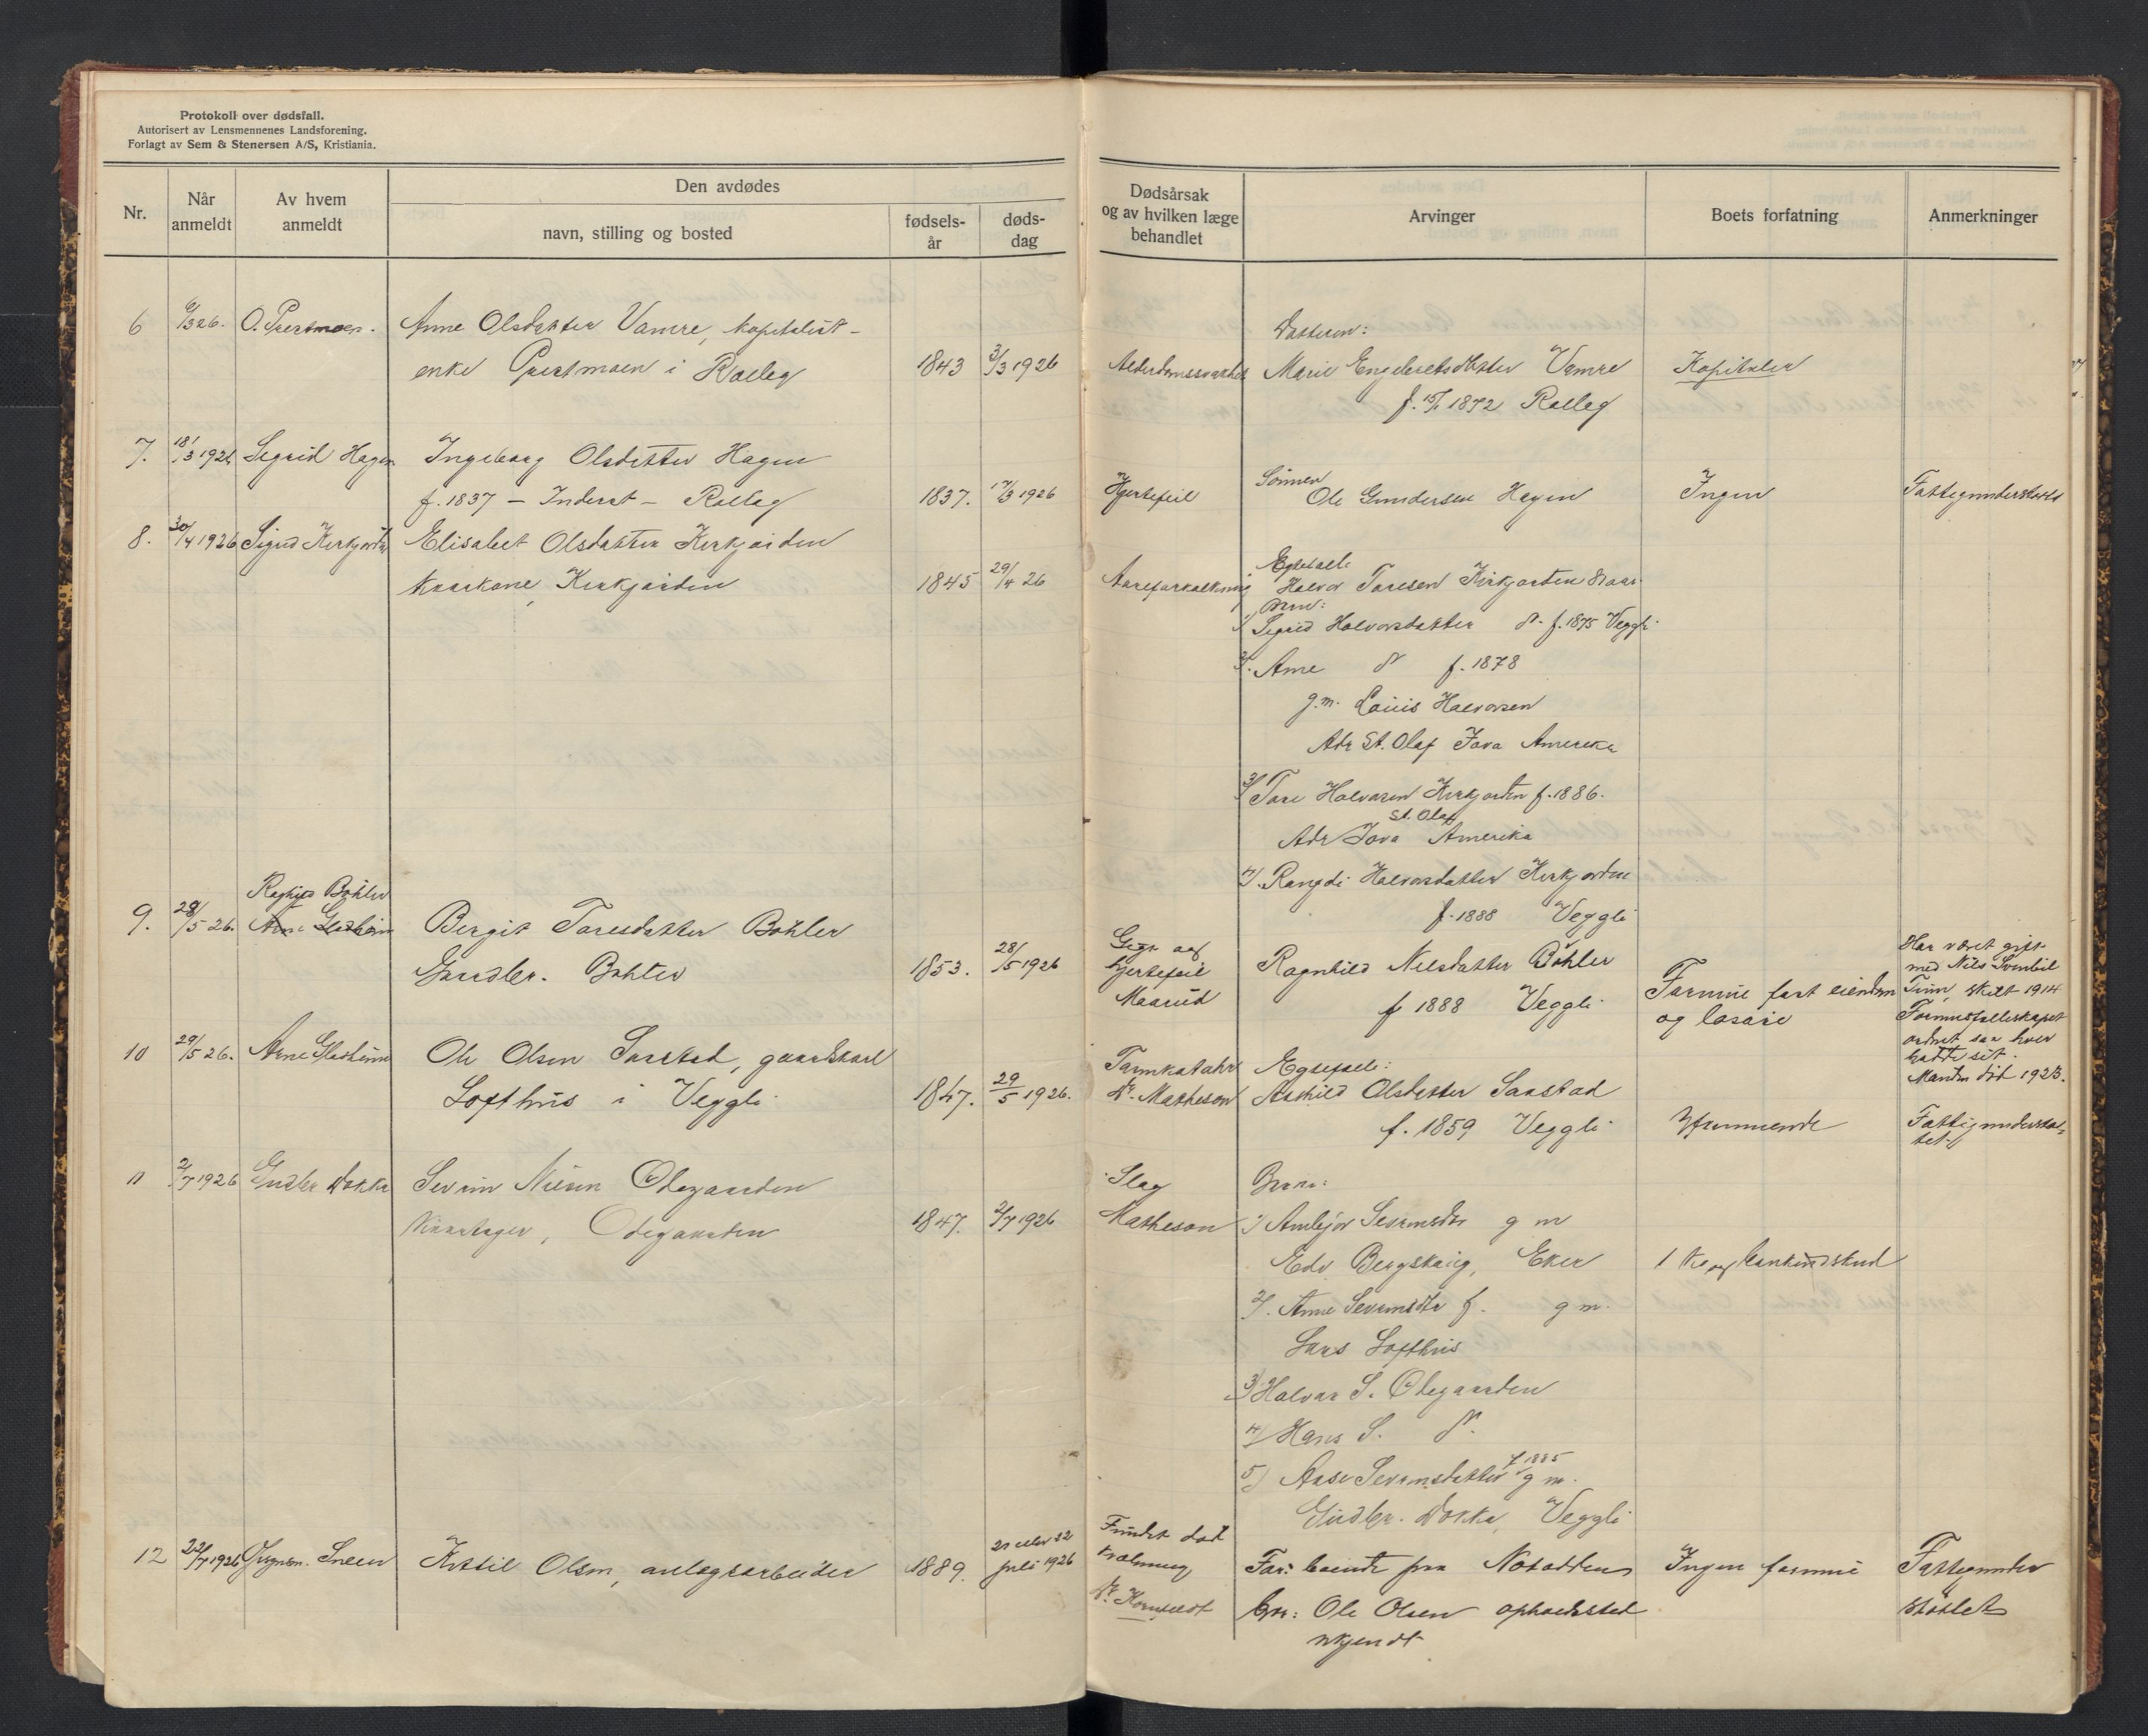 Protokoll over dødsfall.
Autorisert av Lensmennenes Landsforening.
Forlagt av Sem & Stenersen A/S, Kristiania.
Nr.
Når anmeldt
Av hvem anmeldt
Den avdødes
navn, stilling og bosted
fødsels-år
døds-dag
Dødsårsak og av hvilken læge behandlet
Arvinger
Boets forfatning
Anmerkninger
6 6/3 26. O. Prestmoen. Anne Olsdatter Vamre, kapitalist-
enke Prestmoen i Rollag 1843 3/3 1926 Alderdomssvakhet
Datteren:
Marie Engebretsdatter Vamre Kapitaler
f. 15/1 1872 Rollag
7. 18/3 1926 Sigrid Hagen Ingeborg Olsdatter Hagen
f. 1837 – Inderst – Rollag 1837. 17/3 1926 Hjertefeil
Sønnen
Ole Gundersen Hagen Ingen Fattigunderstøtt
8. 30/4 1926 Sigrid Kirkjorden Elisabet Olsdatter Kirkjorden
kaarkone, Kirkjorden 1845 29/4 26 Aareforkalkning
Egtefælle
Halvor Toresen Kirkjorden
Barn:
1/ Sigrid Halvorsdatter do. f. 1875 Veggli
2/. Anne do f. 1878
g.m. Louis Halvorsen
Adr St. Olaf Iova Amerika
3/ Tore Halvorsen Kirkjorden f. 1886.
St. Olaf
Adr Iova Amerika
4/. Rangdi Halvorsdatter Kirkjorden
f. 1888 Veggli
Bøhler
9. 28/5 26. Arne Gladheim Bergit Toresdatter Bøhler
Gaardbr. Bøhler 1853. 28/5 1926
Gigt og
hjertefeil
Maarud
Ragnhild Nilsdatter Bøhler
f 1888 Veggli
Formue fast eiendom
og løsøre
Har været gift
med Nils
skilt 1914
Formuesfælleskapet
ordnet saa hver
hadde sit.
Manden død 1923.
10 29/5 26. Arne Gladheim Ole Olsen Saastad, gaardskarl
Lofthus i Veggli 1847. 29/5 1926.
Tarmkatahr
Dr. Matheson
Egtefælle:
Aashild Olsdatter Saastad
f. 1859 Veggli Uformuende
Fattigunderstø-
tet
11 2/7 1926 Gudbr Dokka Sevrin Nilsen Ødegaarden
Kaartager, Ødegaarden 1847. 2/7 1926
Slag
Matheson
Barn:
1/ Sevrinsdtr g m
Edv Bergskaug, Eker 1 ko og bankindskud
2/. Anne Sevrinsdtr f. g m.
Lars Lofthus
3/ Halvor S. Ødegaarden
4/ Hans S. do.
5) Aase Sevrinsdatter f 1885 g m.
Gudbr. Dokka, Veggli
12 22/7 1926 Sneen Kittil Olsen, anlægsarbeider 1889. 21 eller 22
juli 1926
Fundet død
Dr. Kornfeldt
Far: boende paa Notodden Ingen formue Fattigunder
bror: Ole Olsen opholdssted støttet
ukjendt